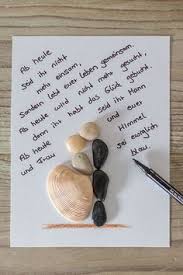 Ab heute
seid ihr nicht
mehr einsam,
lebt euer Leben gemeinsam.
Ab heute
wird nicht mehr gesucht,
Sondern ihr habt das Glück gebucht.
Ab heute
seid ihr Mann
und Frau
denn
und euer
Himmel
sei ewiglich
blau.